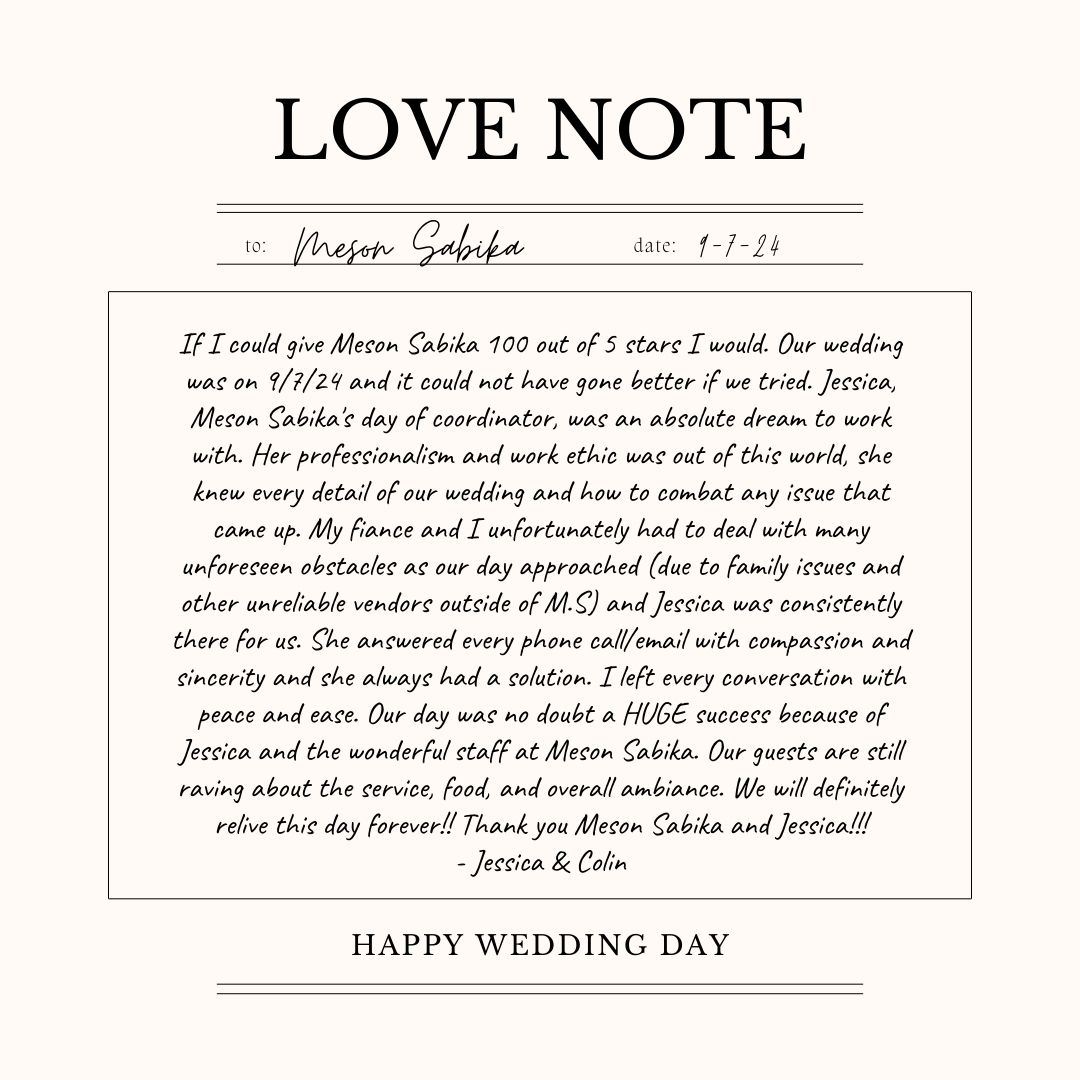 LOVE NOTE
to: Meson Sabika date: 9-7-24
If I could give Meson Sabika 100 out of 5 stars I would. Our wedding
was on 9/7/24 and it could not have gone better if we tried. Jessica,
Meson Sabika's day of coordinator, was an absolute dream to work
with. Her professionalism and work ethic was out of this world, she
knew every detail of our wedding and how to combat any issue that
came up. My fiance and I unfortunately had to deal with many
unforeseen obstacles as our day approached (due to family issues and
other unreliable vendors outside of M.S) and Jessica was consistently
there for us. She answered every phone call/email with compassion and
sincerity and she always had a solution. I left every conversation with
peace and ease. Our day was no doubt a HUGE success because of
Jessica and the wonderful staff at Meson Sabika. Our guests are still
raving about the service, food, and overall ambiance. We will definitely
relive this day forever!! Thank you Meson Sabika and Jessica!!!
- Jessica & Colin
HAPPY WEDDING DAY